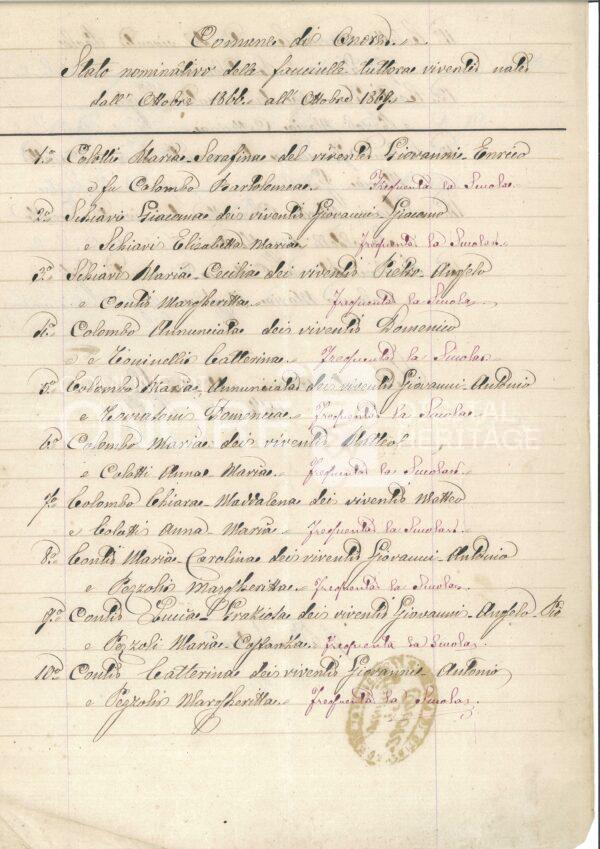 Comune di
Stato nominativo delle fanciulle tuttora viventi nate
dall' Ottobre 1866 all' Ottobre 1869.
1.a Colotti Maria Serafina del vivente Giovanni Enrico
e fu Colombo Bartolomea. Frequenta la Scuola.
2a Schiavi Giacoma dei viventi Giovanni Giacomo
e Schiavi Elisabetta Maria Frequenta la Scuola.
3a Schiavi Maria Cecilia dei viventi Pietro Angelo
e Conti Margheritta. Frequenta la Scuola.
4a Colombo Annunciata dei viventi Domenico
e Toninelli Catterina. Frequenta la Scuola.
5a Maria Annunciata dei viventi Giovanni Antonio
e Domenica. Frequenta la Scuola.
6a Colombo Maria dei viventi Matteo
e Colotti Anna Maria. Frequenta la Scuola.
7a Colombo Chiara Maddalena dei viventi Matteo
e Colotti Anna Maria. Frequenta la Scuola.
8a Conti Maria Carolina dei viventi Giovanni Antonio
e Pezzoli Margheritta. Frequenta la Scuola.
9a Conti Lucia dei viventi Giovanni Angelo
e Pezzoli Maria Costanza. Frequenta la Scuola.
10a Conti Catterina dei viventi Giovanni Antonio
e Pezzoli Margheritta. Frequenta la Scuola.